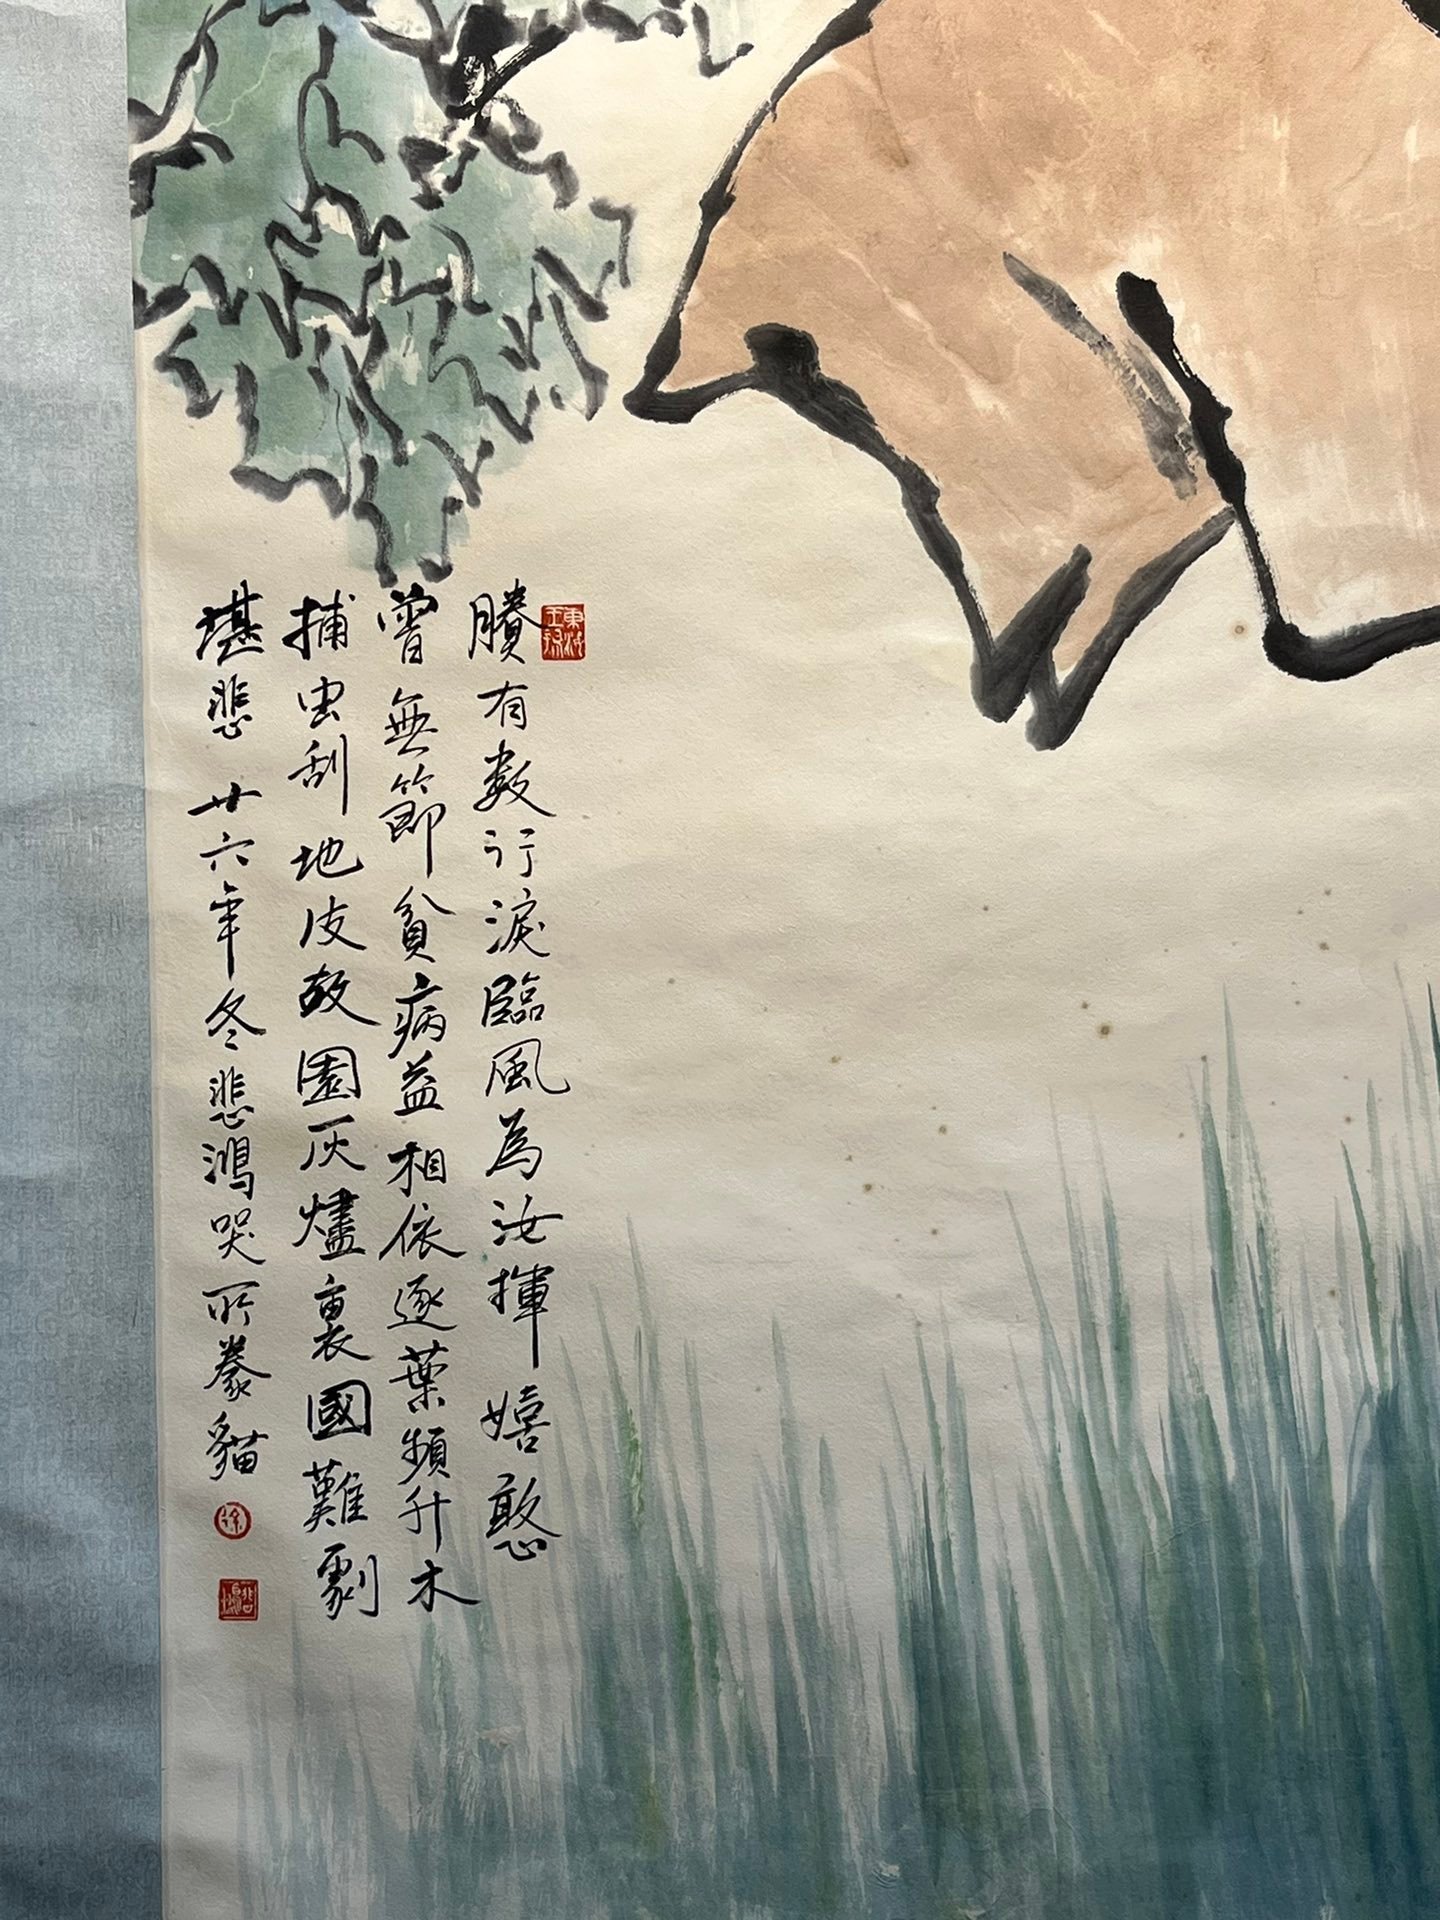 賸有數行淚臨風為汝揮嬉憨
曾無節貧病益相依逐葉頻升木
捕虫刮地皮故園灰燼裏國難劇
堪悲 廿六年冬悲鴻哭所豢貓
徐
悲鴻